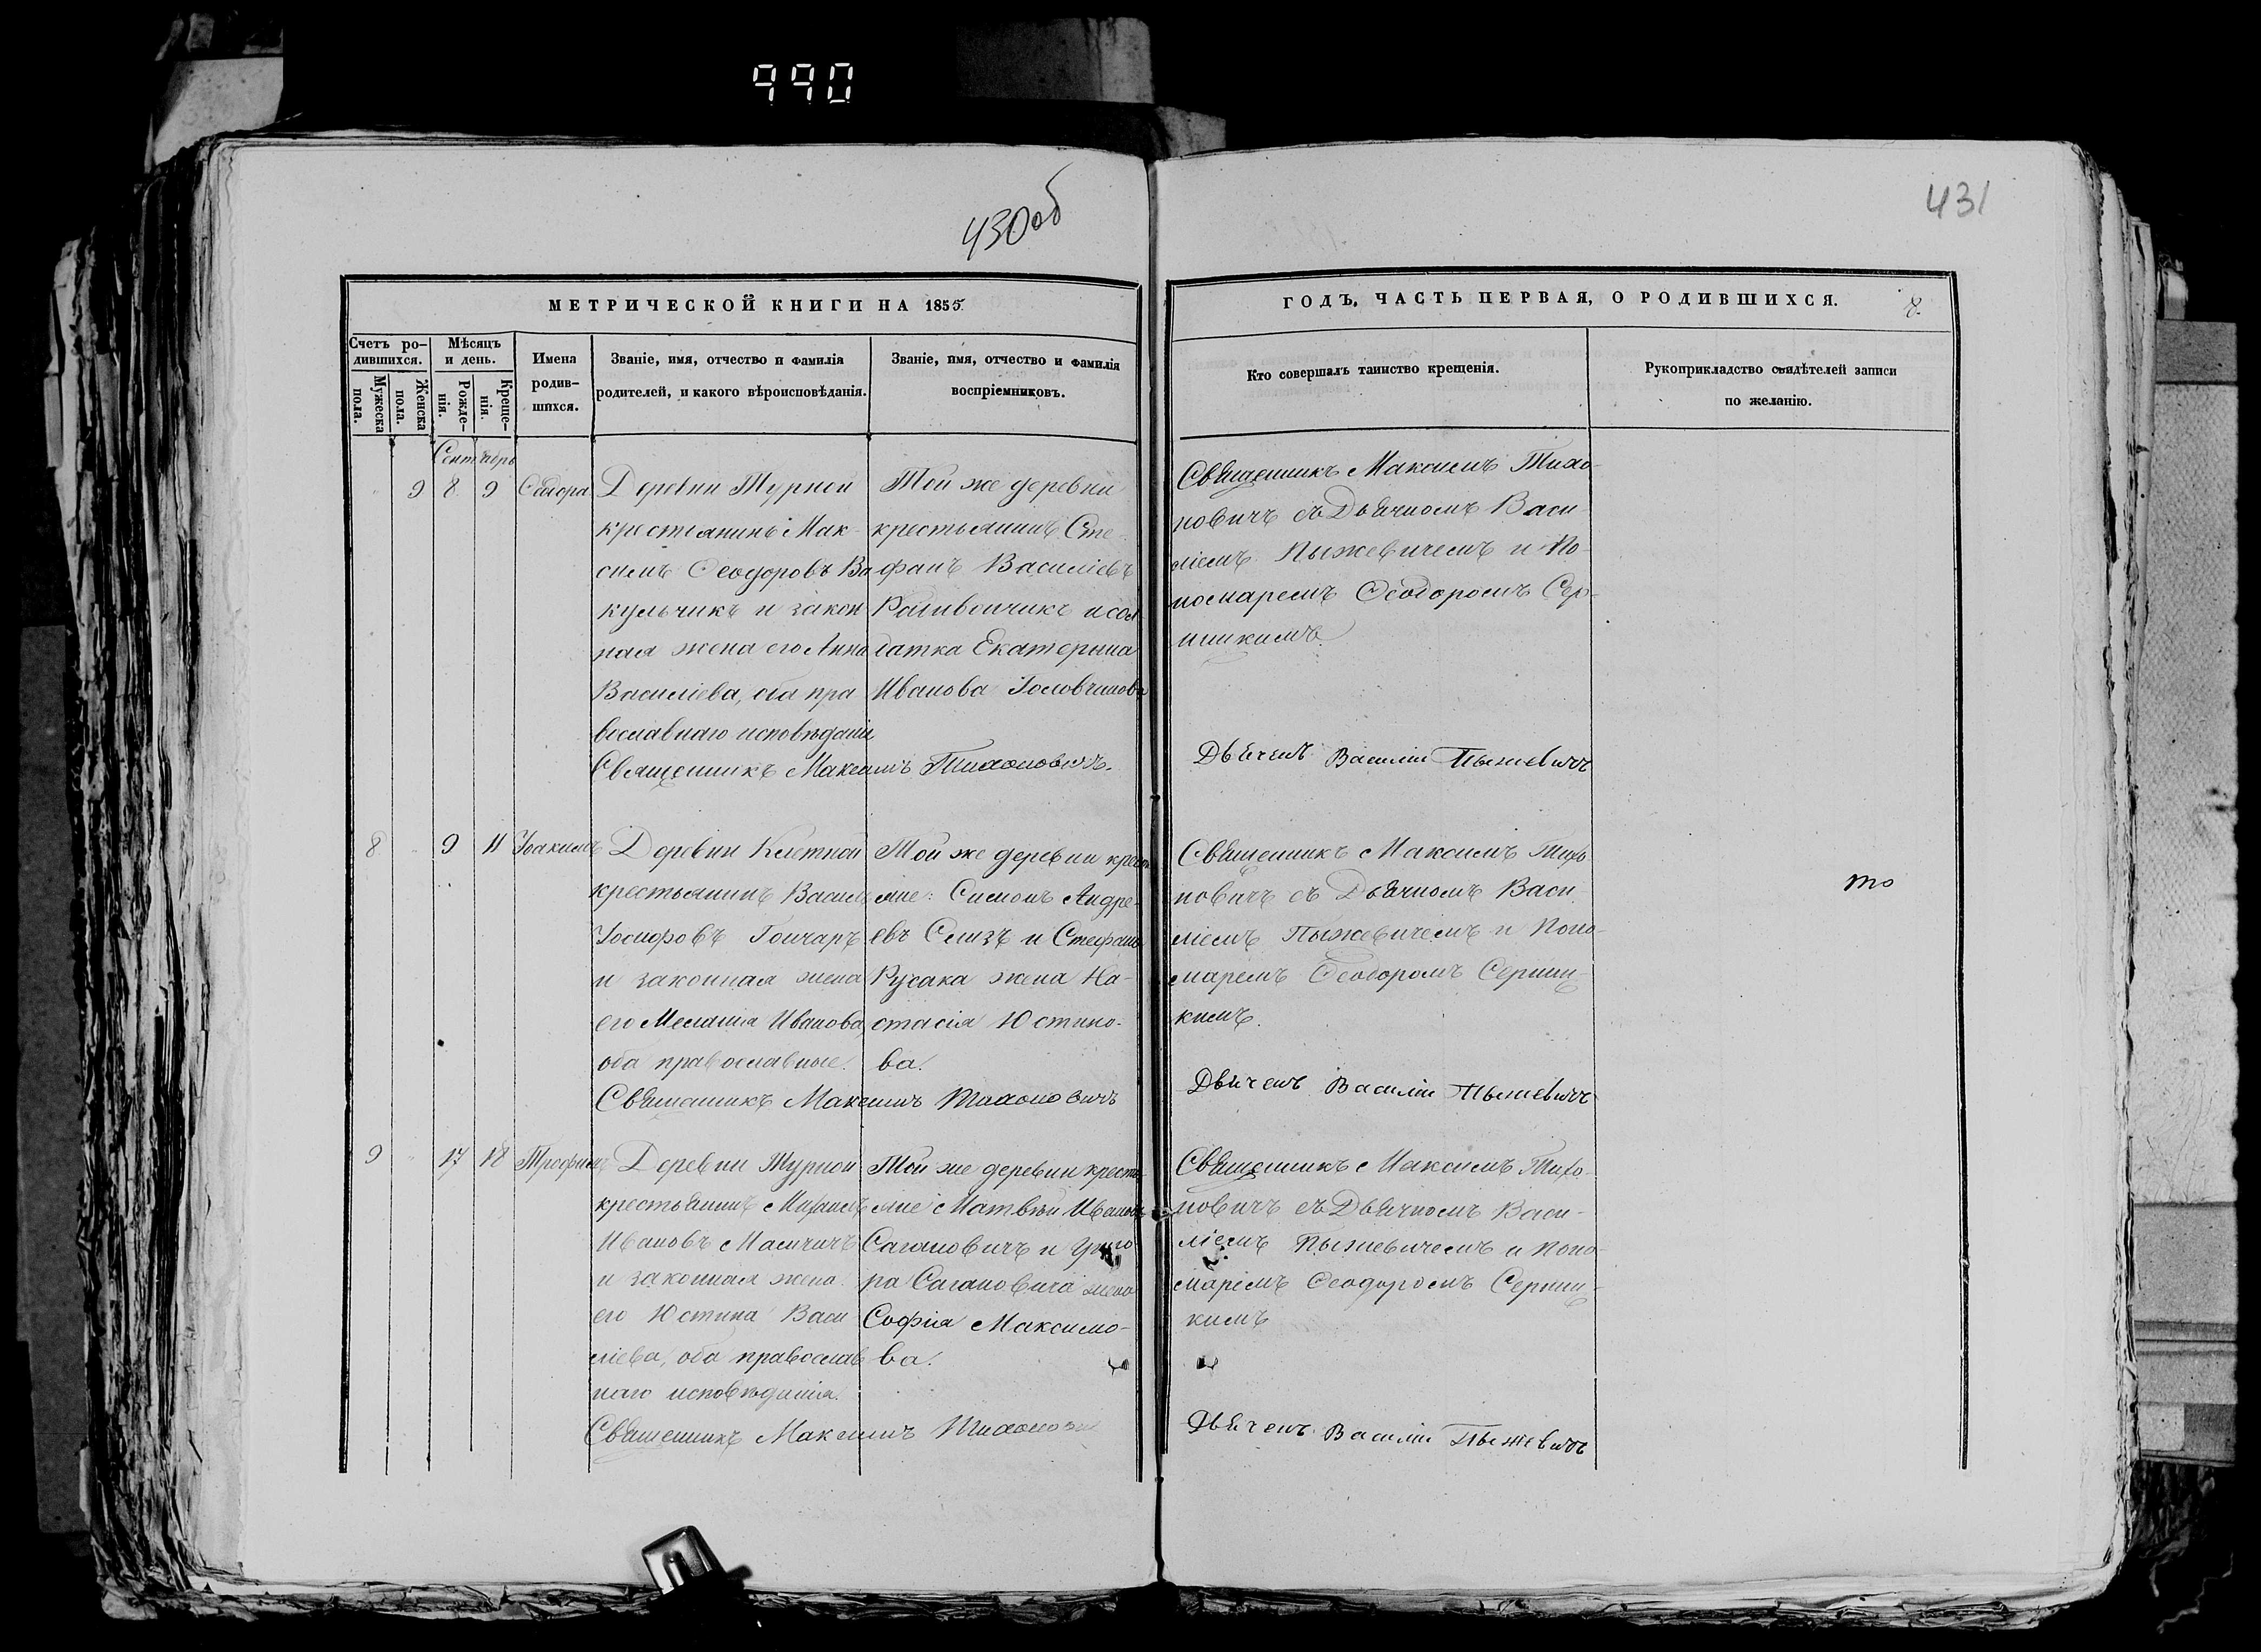 990
430об
431
МЕТРИЧЕСКОЙ КНИГИ НА 1855
ГОДЪ, ЧАСТЬ ПЕРВАЯ, О РОДИВШИХСЯ.
8.
Счетъ ро-
дившихся.
Мужеска
пола.
Женска
пола.
Мѣсяцъ
и день.
Рожде-
нія.
Креще-
нія.
Имена
родив-
шихся.
Званіе, имя, отчество и фамилія
родителей, и какого вѣроисповѣданія.
Званіе, имя, отчество и фамилія
воспріемниковъ.
Кто совершалъ таинство крещенія.
Рукоприкладство свидѣтелей записи
по желанію.
Сентябрь
9 8 9 Ѳеодора
Деревни Турной
крестьянинъ Мак-
симъ Ѳеодоровъ Ва
кульчикъ и закон
ная жена его Анна
Василіева, оба пра
вославнаго исповѣданія
Священникъ Максимъ Тихоновичъ.
Той же деревни
крестьянинъ Сте-
фанъ Василіевъ
и сол
датка Екатерина
Иванова Головчинова
Священникъ Максимъ Тихо-
новичъ съ Дьячкомъ Васи-
ліемъ Пыжевичемъ и По-
номаремъ Ѳеодоромъ Сер-
Дьячекъ Василій Пыжевичъ
8 9 11 Іоакимъ
Деревни Клетной
крестьянинъ Василій
Іосифовъ Гончаръ
и законная жена
его Меланія Иванова,
оба православные.
Священникъ Максимъ Тихоновичъ
Той же деревни крестья
не: Симонъ Андре-
евъ Слизъ и Стефана
Русака жена На-
стасія Юстино-
ва.
Священникъ Максимъ Тихо
новичъ съ Дьячкомъ Васи-
ліемъ Пыжевичемъ и Поно-
маремъ Ѳеодоромъ Серниц-
кимъ.
Дьячекъ Василій Пыжевичъ
то
9 17 18 Трофимъ
Деревни Турной
крестьянинъ Михаилъ
Ивановъ
и законная жена
его Юстина Васи
ліева, оба православ
наго исповѣданія.
Священникъ Максимъ Тихонович
Той же деревни крестья
не Матвѣй Ивановъ
Сагановичъ и Григо
ра Сагановича жена
Софія Максимо-
ва.
Священникъ Максимъ Тихо-
новичъ съ Дьячкомъ Васи-
ліемъ Пыжевичемъ и Поно-
маремъ Ѳеодоромъ Серниц-
кимъ
Дьячекъ Василій Пыжевичъ